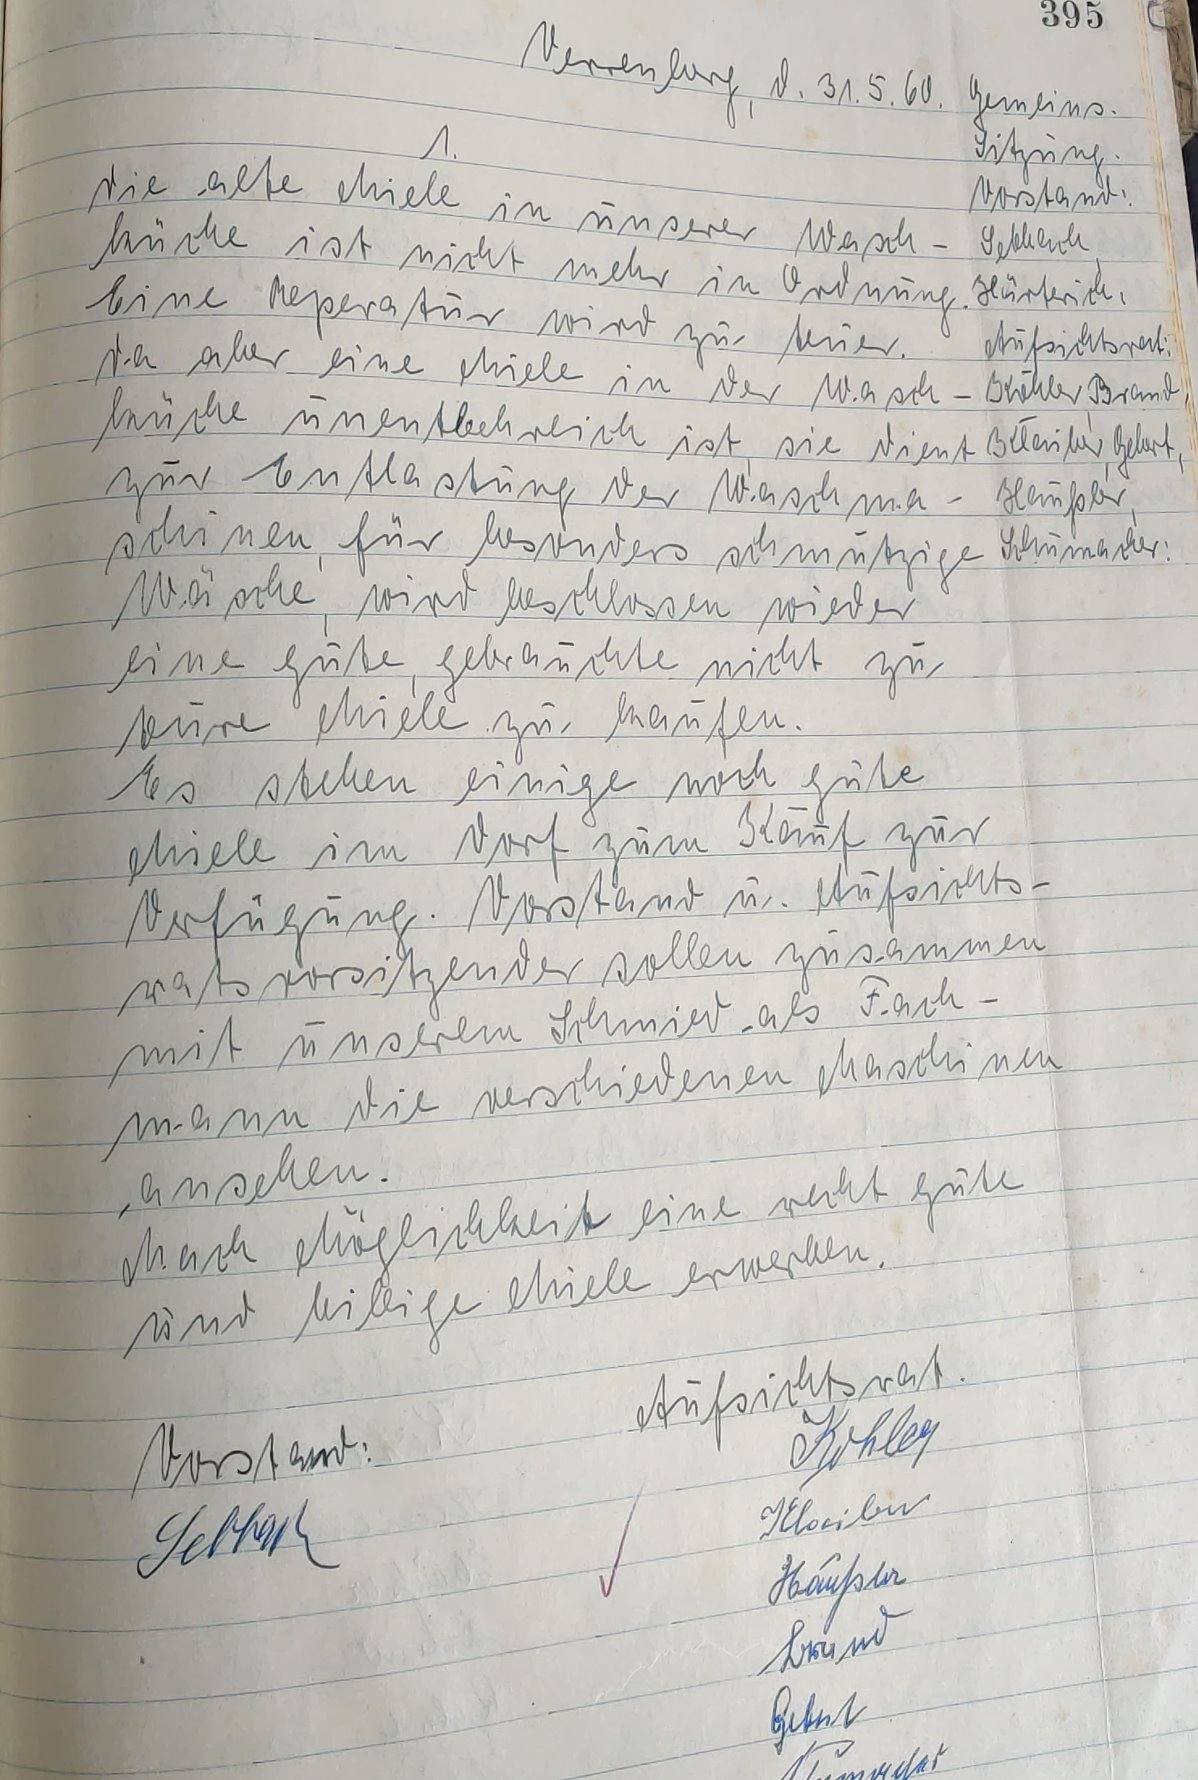 395
Verrenberg, d. 31.5.60.
Gemeins.
Sitzung.
Vorstand:
Sebbach,
Härterich.
Aufsichtsrat:
Köhler, Brand,
Klaiber, Gebert,
Häußler,
Schumacher:
1.
Die alte Miele in unserer Wasch-
küche ist nicht mehr in Ordnung.
Eine Reperatur wird zu teuer.
Da aber eine Miele in der Wasch-
küche unentbehrlich ist, sie dient
zur Entlastung der Waschma-
schinen, für besonders schmutzige
Wäsche, wird beschlossen wieder
eine gute, gebrauchte nicht zu
teure Miele zu kaufen.
Es stehen einige noch gute
Miele im Dorf zum Kauf zur
Verfügung. Vorstand u. Aufsichts-
ratsvorsitzender sollen zusammen
mit unserem Schmied als Fach-
mann die verschiedenen Maschinen
ansehen.
Nach Möglichkeit eine recht gute
und billige Miele erwerben.
Aufsichtsrat.
Vorstand:
Köhler
Klaiber
Häußler
Brand
Gebert